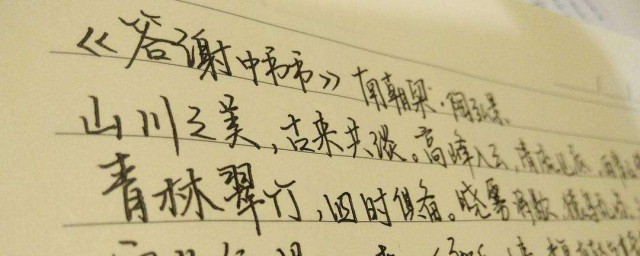 《答谢中书》南朝梁·陶弘景
山川之美,古来共谈。高峰入云,清流见底,两岸
青林翠竹,四时俱备。晓雾将歇,猿鸟乱鸣